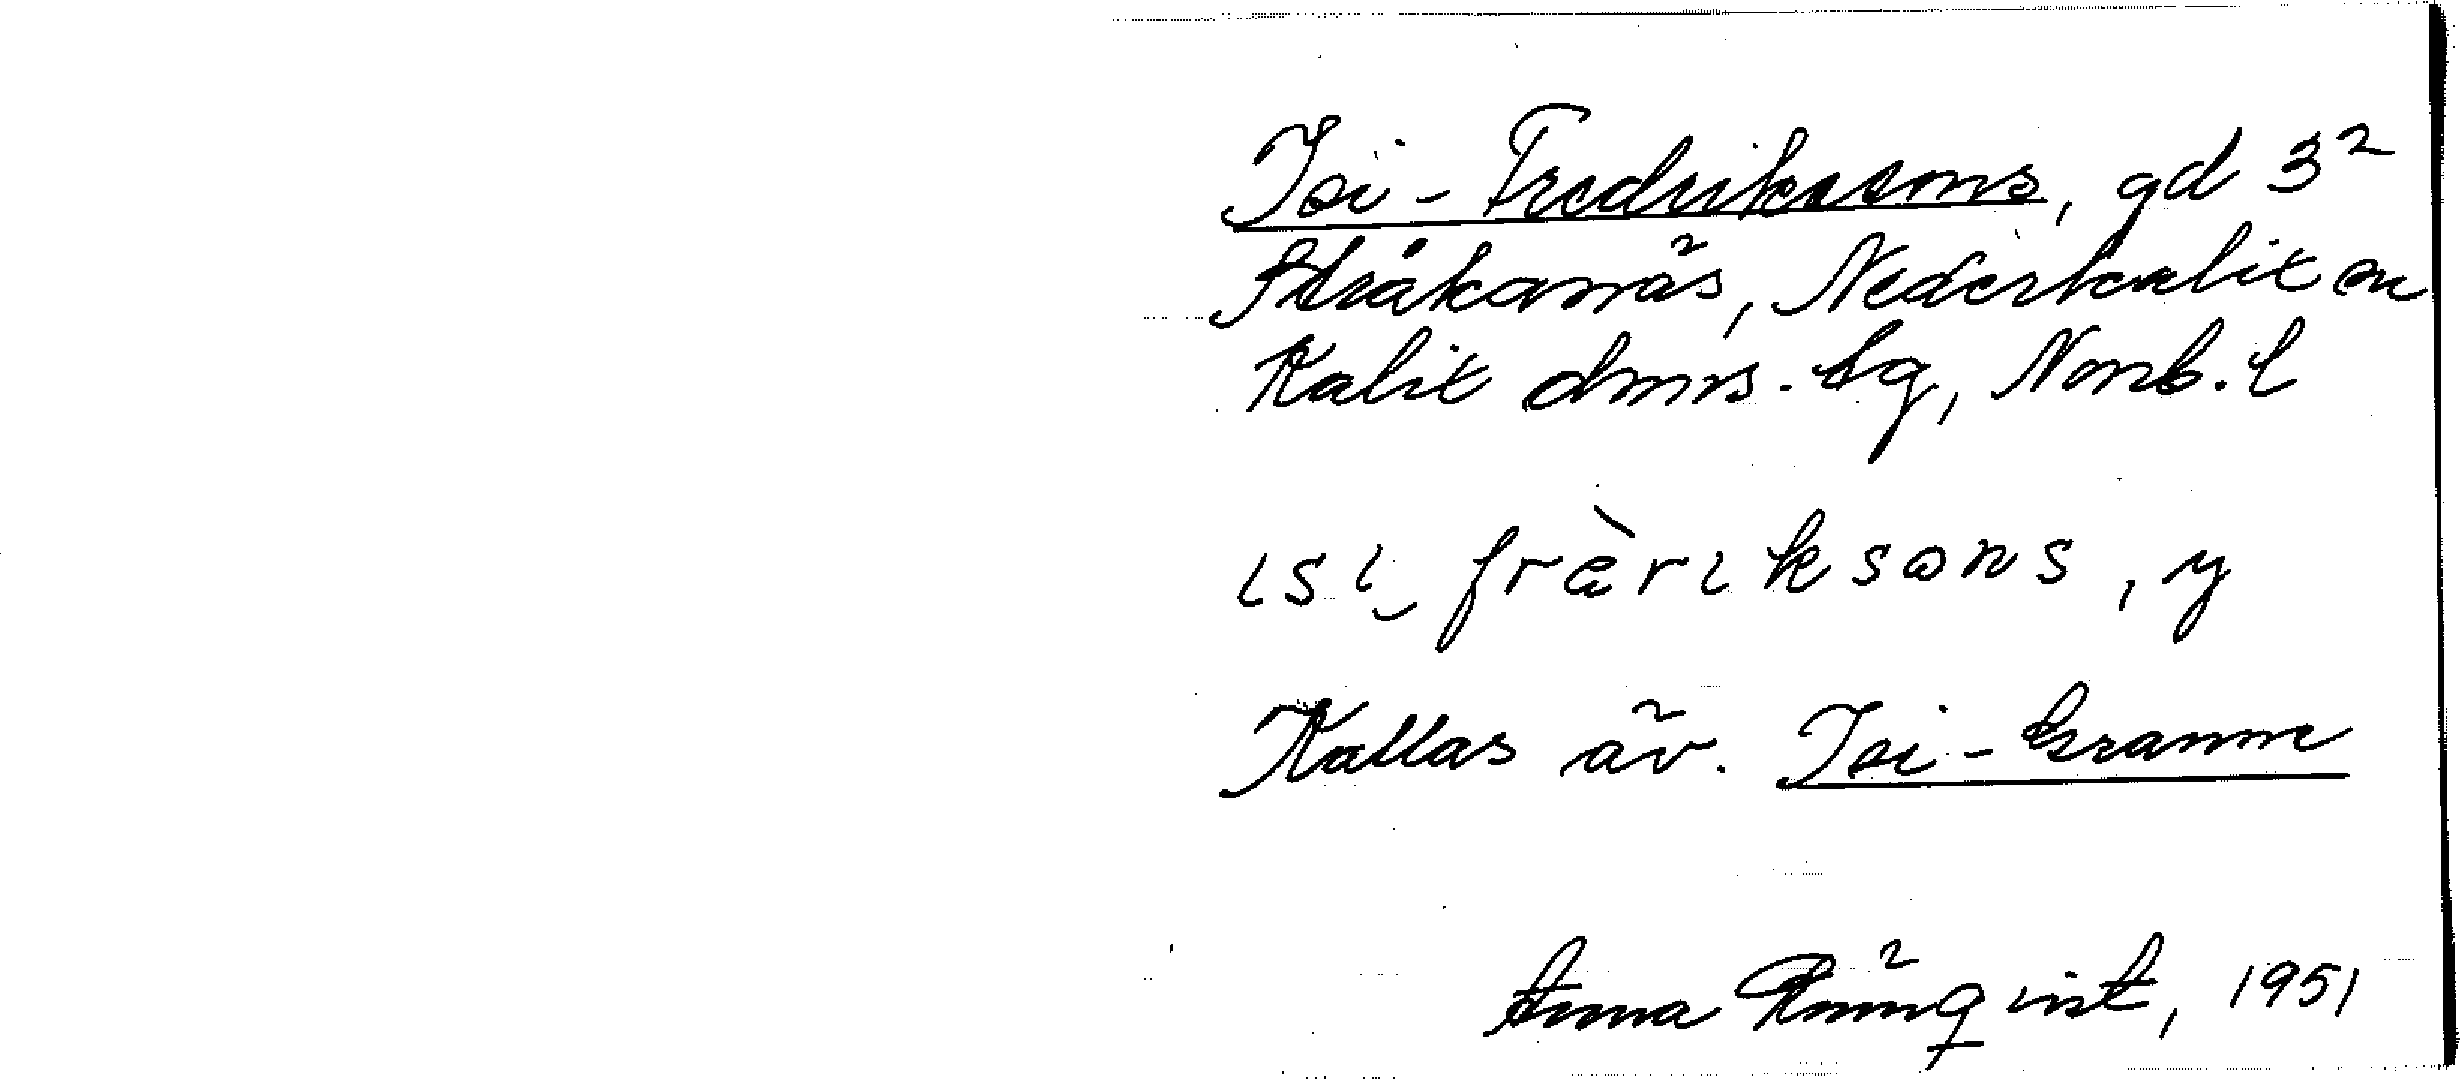 Isi-Fredriksons, gd 3²
Stråkanäs, Nederkalix sn
Kalix dmrs. lg, Norrb. l
ısı‿frὰrıksɷns, y
Kallas äv. Isi-Granne
Anna Rönnqvist, 1951